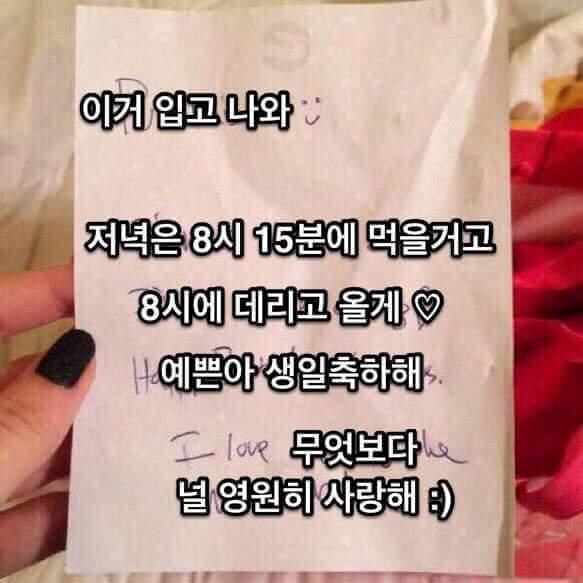 이거 입고 나와
저녁은 8시 15분에 먹을거고
8시에 데리고 올게 ♡
예쁜아 생일축하해
I love
무엇보다
널 영원히 사랑해 :)